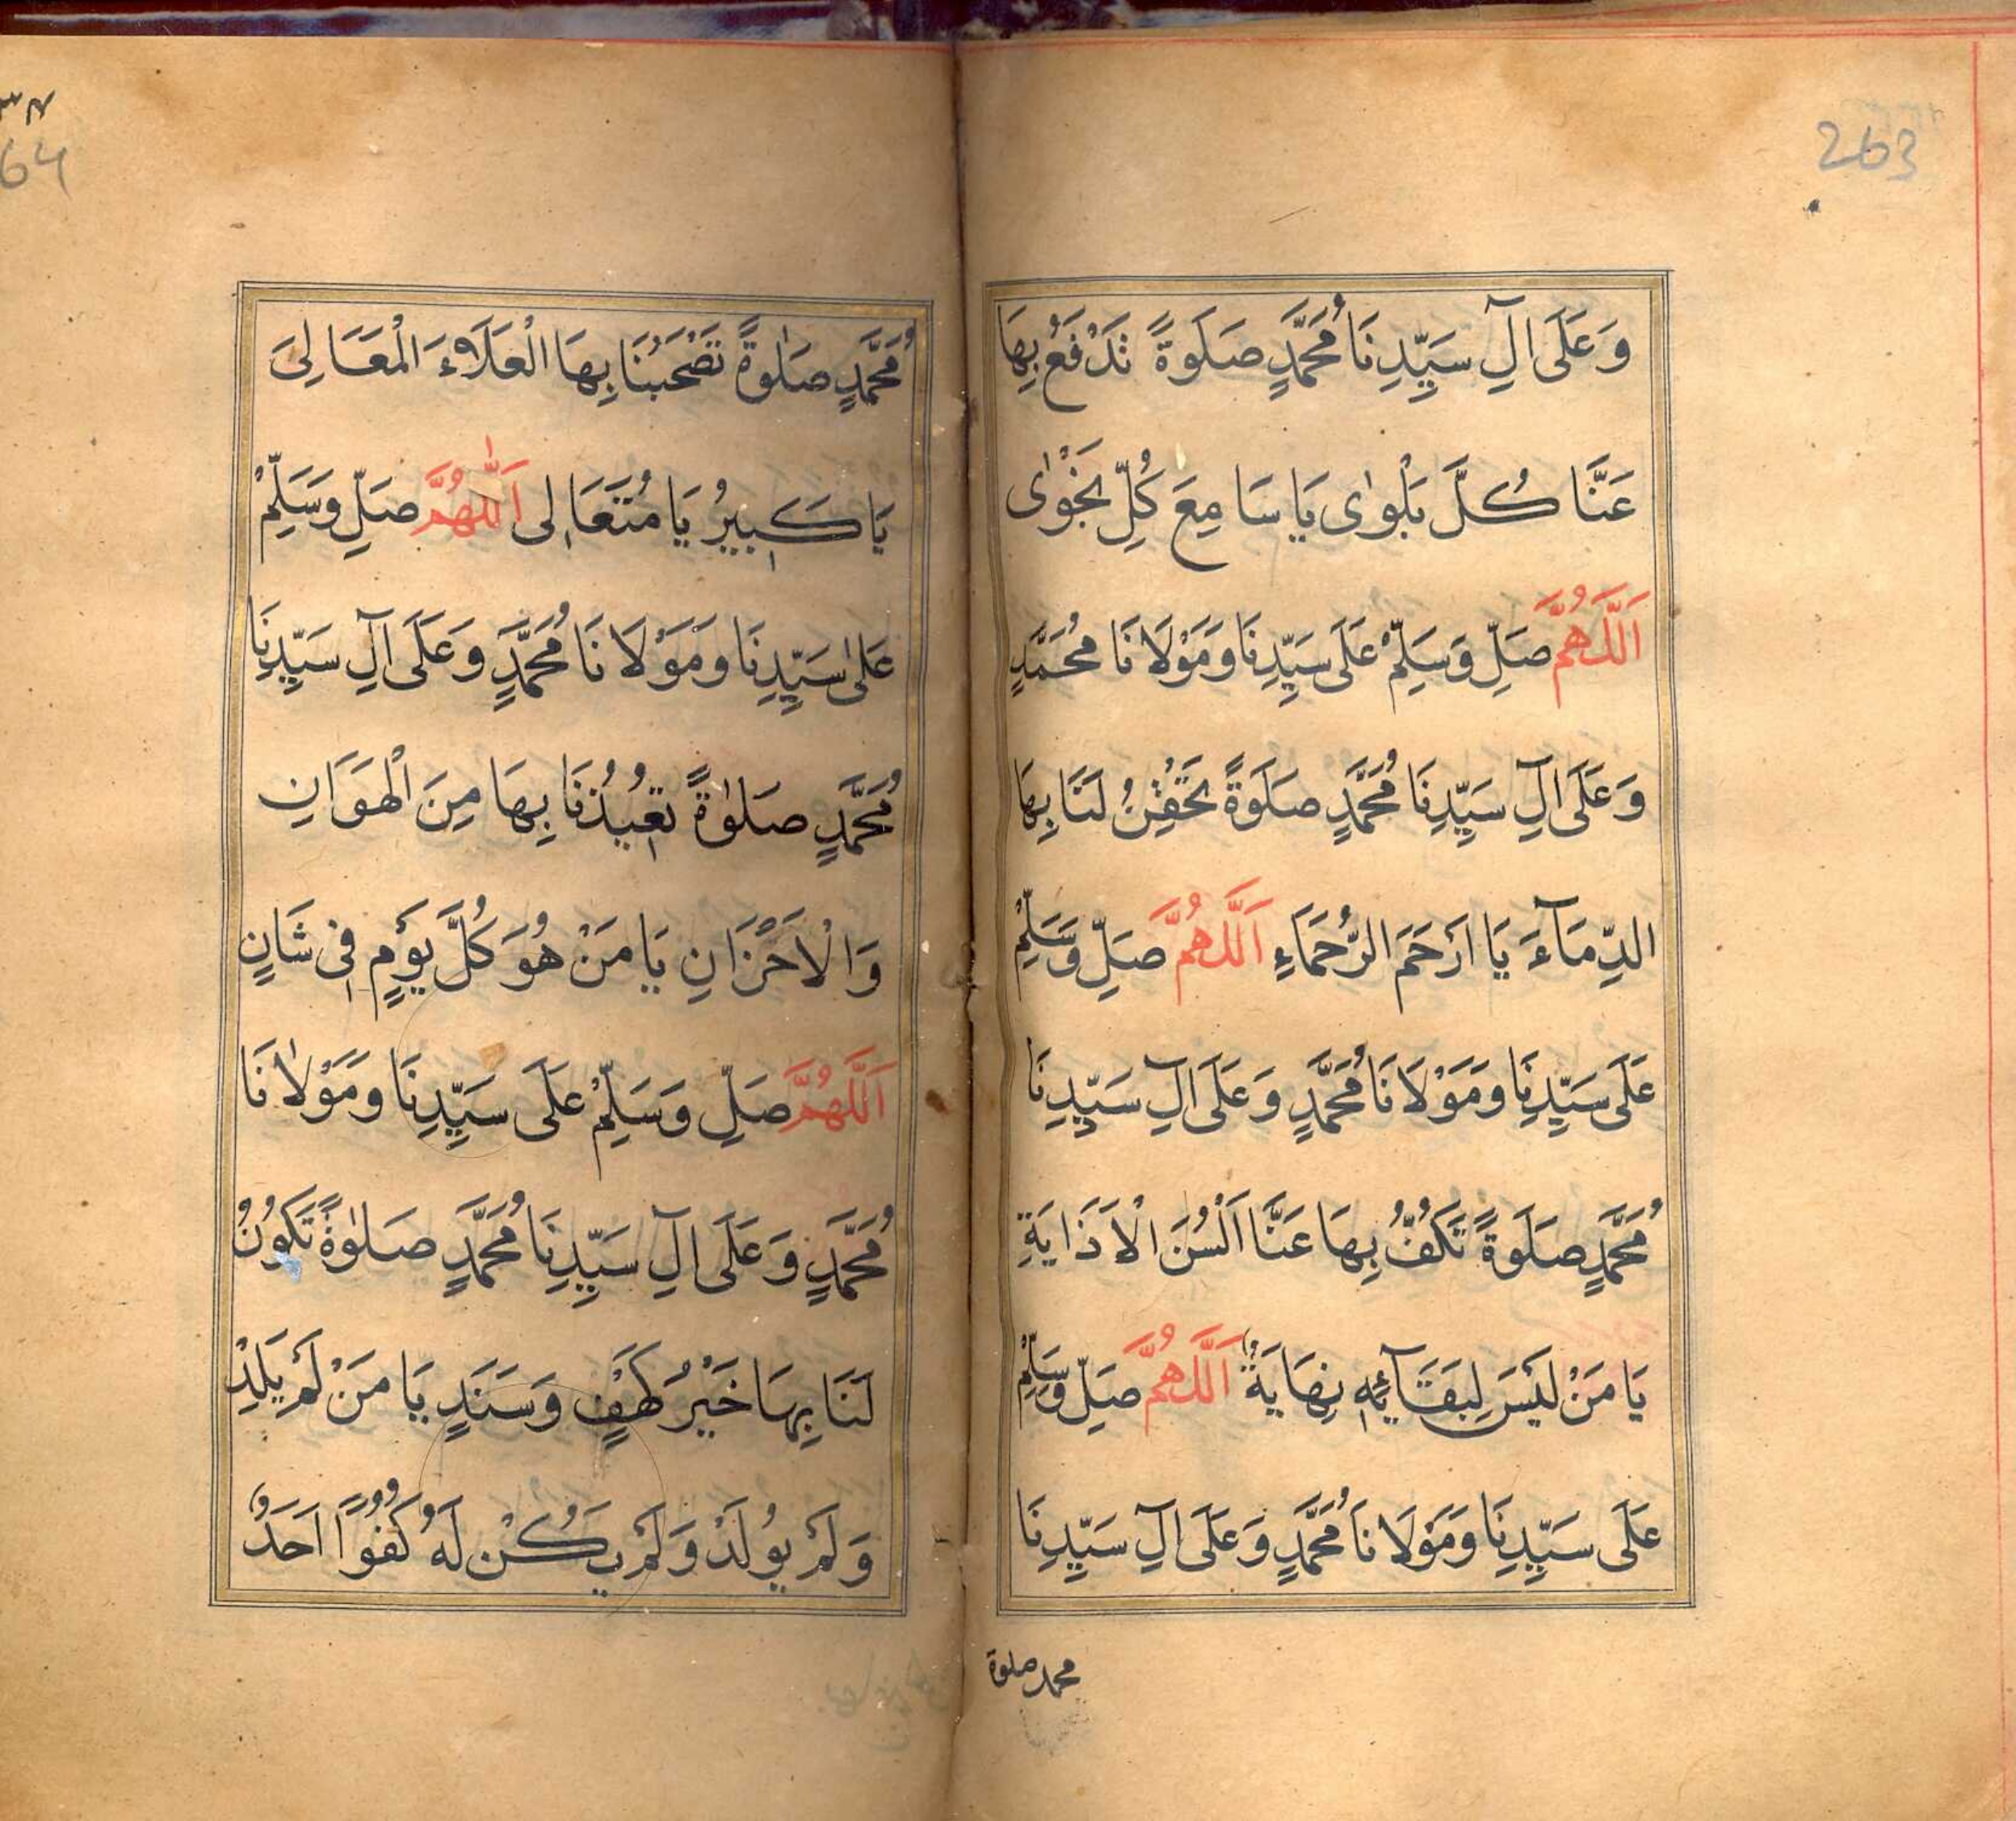 263
وَعَلَى آلِ سَيِّدِنَا مُحَمَّدٍ صَلَوةً تَدْفَعُ بِهَا
عَنَّا كُلَّ بَلْوٰى يَا سَامِعَ كُلِّ نَجْوٰى
اَللّٰهُمَّ صَلِّ وَسَلِّمْ عَلَى سَيِّدِنَا وَمَوْلَانَا مُحَمَّدٍ
وَعَلَى آلِ سَيِّدِنَا مُحَمَّدٍ صَلَوةً تَحْقِنُ لَنَا بِهَا
الدِّمَآءَ يَا اَرْحَمَ الرُّحَمَاءِ اَللّٰهُمَّ صَلِّ وَسَلِّمْ
عَلَى سَيِّدِنَا وَمَوْلَانَا مُحَمَّدٍ وَعَلَى آلِ سَيِّدِنَا
مُحَمَّدٍ صَلَوةً تَكُفُّ بِهَا عَنَّا اَلْسُنَ الْاَذَايَةِ
يَا مَنْ لَيْسَ لِبَقَآئِهٖ نِهَايَةٌ اَللّٰهُمَّ صَلِّ وَسَلِّمْ
عَلَى سَيِّدِنَا وَمَوْلَانَا مُحَمَّدٍ وَعَلَى آلِ سَيِّدِنَا
محمد صلوة
64
مُحَمَّدٍ صَلٰوةً تَصْحَبُنَا بِهَا الْعَلَاءَ الْمَعَالِىَ
يَا كَبِيرُ يَا مُتَعَالِى اَللّٰهُمَّ صَلِّ وَسَلِّمْ
عَلٰى سَيِّدِنَا وَمَوْلَانَا مُحَمَّدٍ وَعَلَى آلِ سَيِّدِنَا
مُحَمَّدٍ صَلٰوةً تُعِيذُنَا بِهَا مِنَ الْهَوَانِ
وَالْاَحْزَانِ يَا مَنْ هُوَ كُلَّ يَوْمٍ فِى شَانٍ
اَللّٰهُمَّ صَلِّ وَسَلِّمْ عَلَى سَيِّدِنَا وَمَوْلٰانَا
مُحَمَّدٍ وَعَلَى آلِ سَيِّدِنَا مُحَمَّدٍ صَلٰوةً تَكُونُ
لَنَا بِهَا خَيْرُ كَهْفٍ وَسَنَدٍ يَا مَنْ لَمْ يَلِدْ
وَلَمْ يُولَدْ وَلَمْ يَكُنْ لَهُ كُفُوًا اَحَدٌ